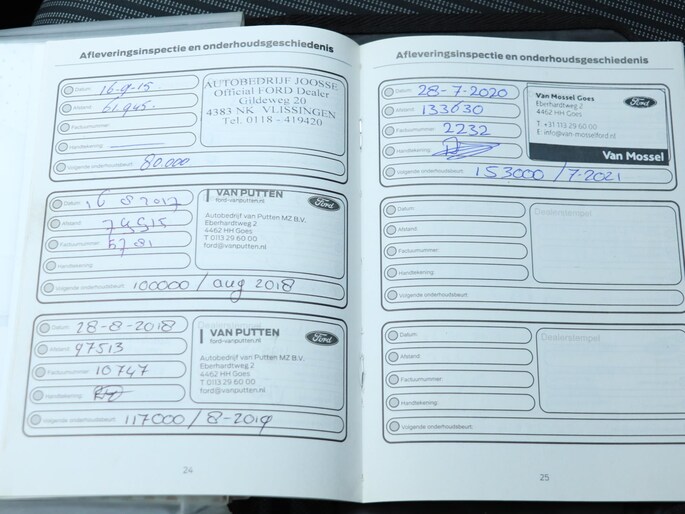 Afleveringsinspectie en onderhoudsgeschiedenis
Datum: 16-9-15.
Afstand: 61.945.
Factuurnummer:
Handtekening:
Volgende onderhoudsbeurt: 80.000
AUTOBEDRIJF JOOSSE
Official FORD Dealer
Gildeweg 20
4383 NK VLISSINGEN
Tel. 0118 - 419420
Datum: 16 8 2017
Afstand:
Factuurnummer:
Handtekening:
Volgende onderhoudsbeurt: 100000 / aug 2018
VAN PUTTEN
ford-vanputten.nl
Ford
Autobedrijf van Putten MZ B.V.
Eberhardtweg 2
4462 HH Goes
T 0113 29 60 00
ford@vanputten.nl
Datum: 28-8-2018
Afstand: 97513
Factuurnummer: 10747
Handtekening:
Volgende onderhoudsbeurt: 117000 / 8-2019
VAN PUTTEN
ford-vanputten.nl
Ford
Autobedrijf van Putten MZ B.V.
Eberhardtweg 2
4462 HH Goes
T 0113 29 60 00
ford@vanputten.nl
24
Afleveringsinspectie en onderhoudsgeschiedenis
Datum: 28-7-2020
Afstand: 133630
Factuurnummer: 2232
Handtekening:
Volgende onderhoudsbeurt: 153000 / 7-2021
Van Mossel Goes
Eberhardtweg 2
4462 HH Goes
T: +31 113 29 60 00
E: info@van-mosselford.nl
Ford
Van Mossel
Datum:
Afstand:
Factuurnummer:
Handtekening:
Volgende onderhoudsbeurt:
Dealerstempel
Datum:
Afstand:
Factuurnummer:
Handtekening:
Volgende onderhoudsbeurt:
Dealerstempel
25